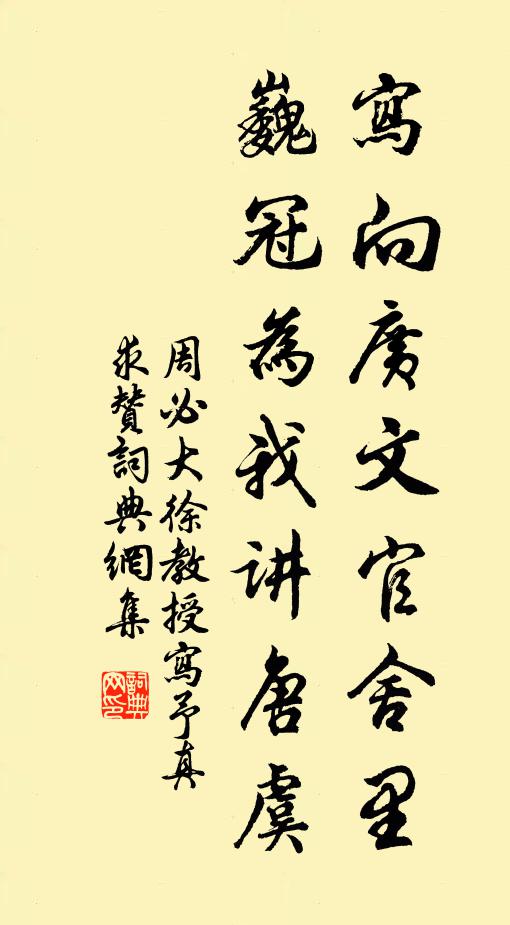 寫向廣文官舍里
巍冠為我讲唐虞
周必大徐教授寫予真
求贊詞典網集
詞典网印